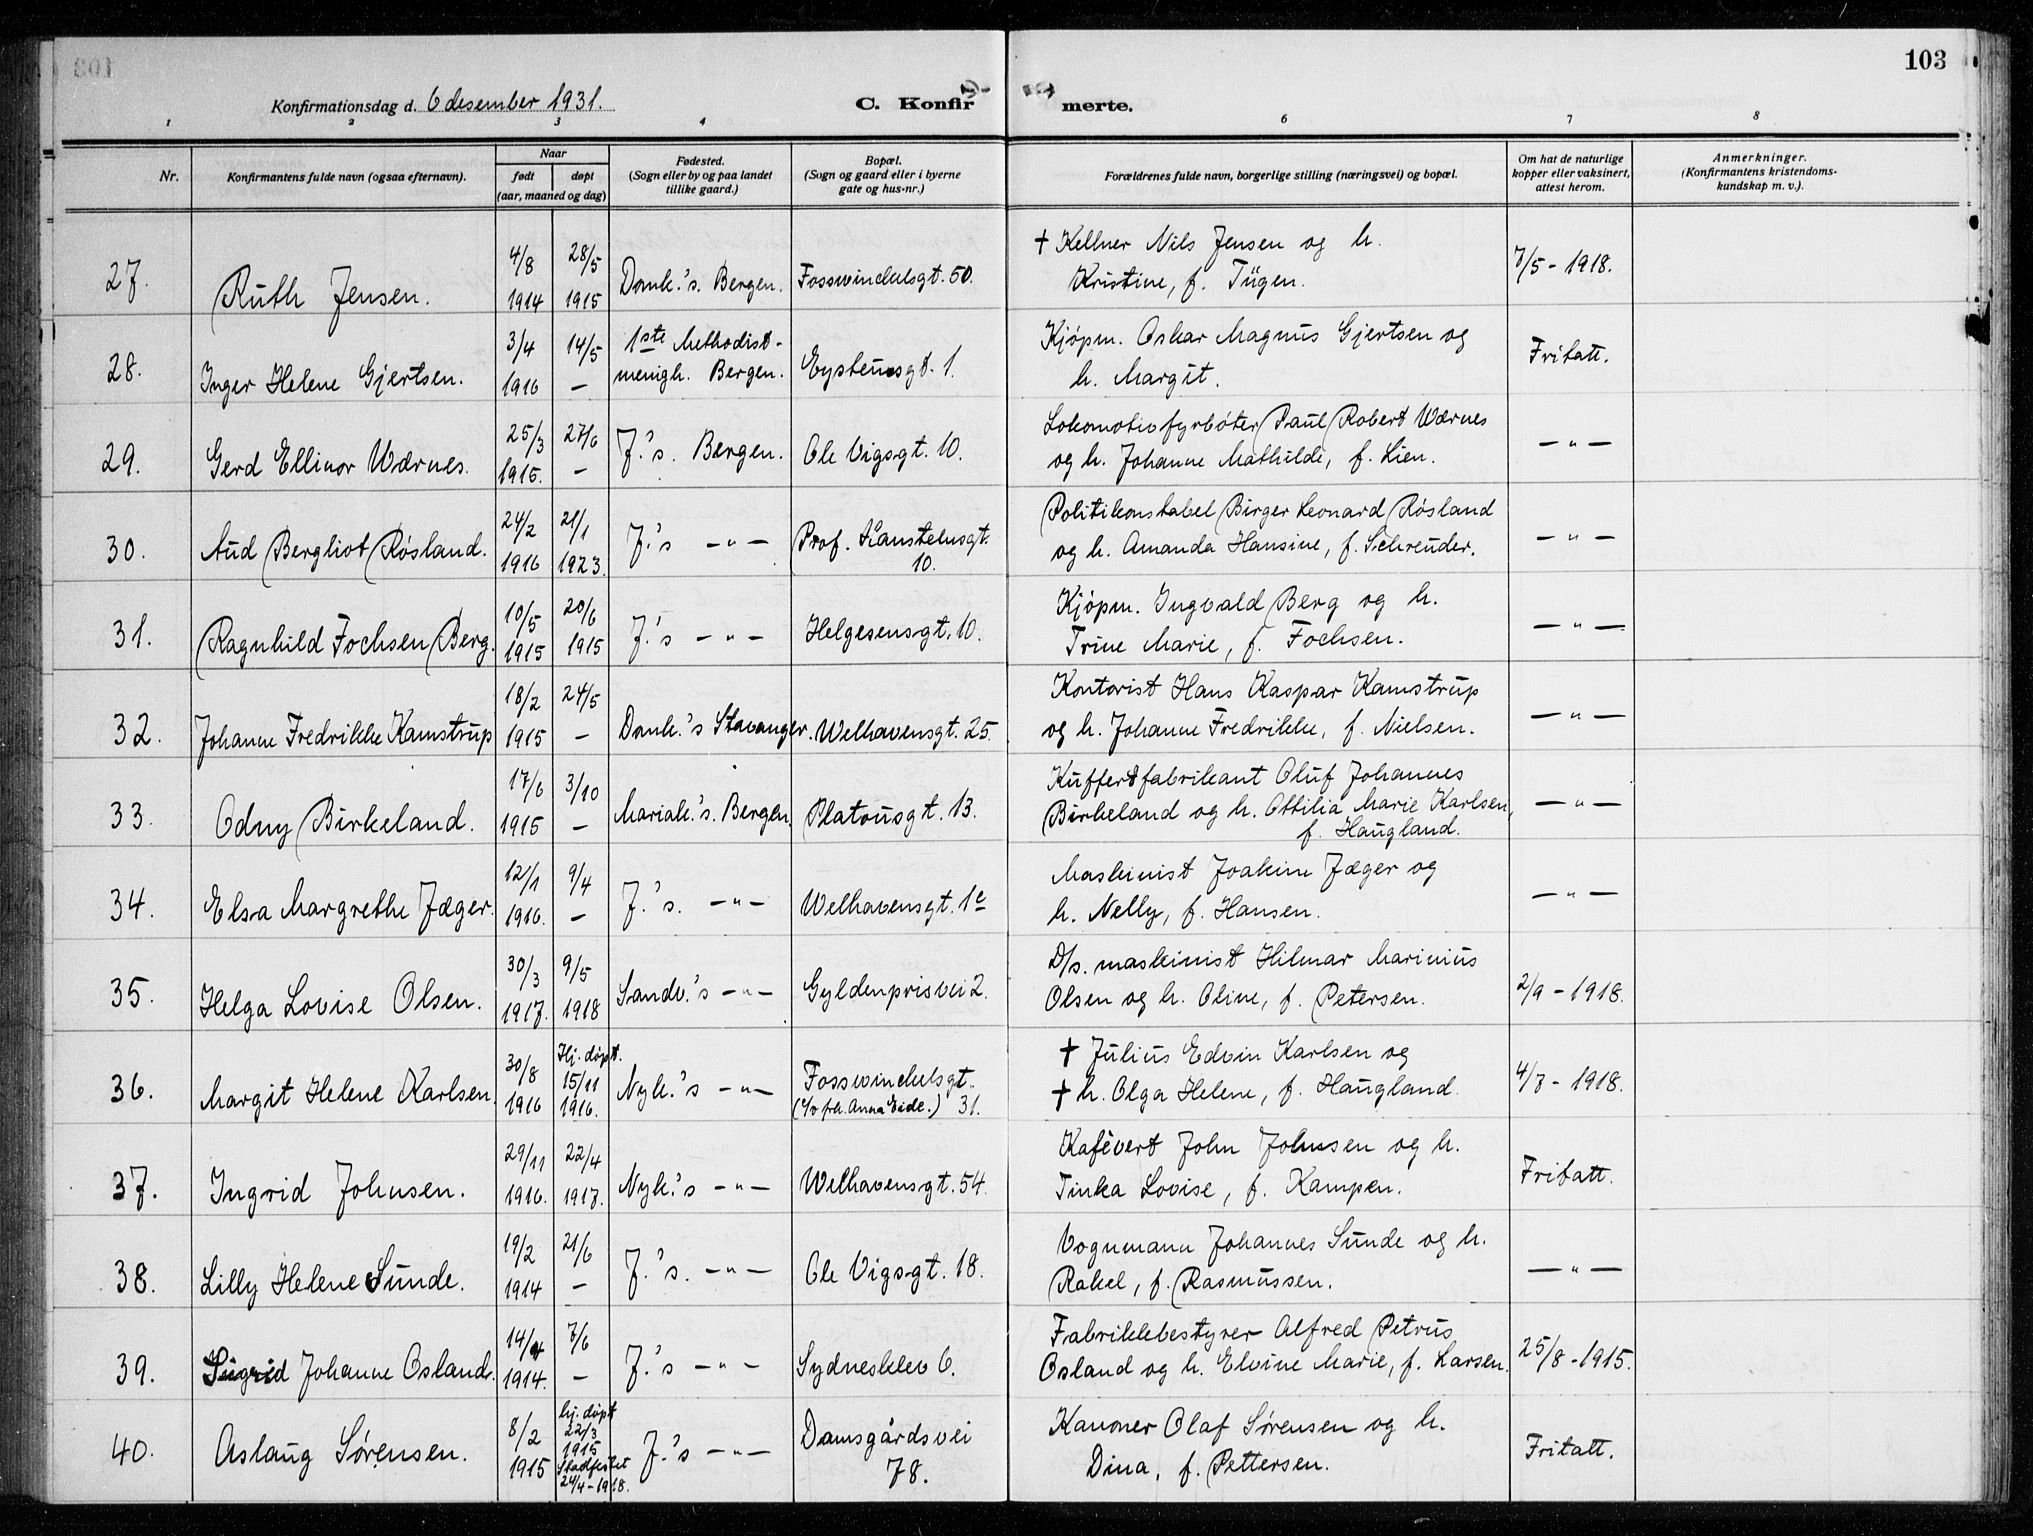 103
Konfirmationsdag d. 6 desember 1931.
C. Konfirmerte.
1 2 3 4 6 7 8
Nr.
Konfirmantens fulde navn (ogsaa efternavn).
Naar
født døpt
(aar, maaned og dag)
Fødested.
(Sogn eller by og paa landet
tillike gaard.)
Bopæl.
(Sogn og gaard eller i byerne
gate og hus-nr.)
Forældrenes fulde navn, borgerlige stilling (næringsvei) og bopæl.
Om hat de naturlige
kopper eller vaksinert,
attest herom.
Anmerkninger.
(Konfirmantens kristendoms-
kundskap m. v.).
27. Ruth Jensen.
4/8 1914
28/5 1915
Domk.'s. Bergen.
Fosswinckelsgt. 50.
† Kellner Nils Jensen og h.
Kristine, f. Tügen.
7/5 - 1918.
28. Inger Helene Gjertsen.
3/4 1916
14/5 —
1ste Methodist-
menigh. Bergen.
Eysteinsgt. 1.
Kjøpm. Oskar Magnus Gjertsen og
h. Margit.
Fritatt.
29. Gerd Ellinor Wærnes.
25/3 1915.
27/6 —
J.'s. Bergen.
Ole Vigsgt. 10.
Lokomotivfyrbøter Paul Robert Wærnes
og h. Johanne Mathilde, f. Lien.
— " —
30. Aud Bergliot Røsland.
24/2 1916
21/1 1923.
J.'s — " —
Prof. Hanstehnsgt.
10.
Politikonstabel Birger Leonard Røsland
og h. Amanda Hansine, f. Schreuder.
— " —
31. Ragnhild Fochsen Berg.
10/5 1915
20/6 1915
J.'s — " —
Helgesensgt. 10.
Kjøpm. Ingvald Berg og h.
Trine Marie, f. Fochsen.
— " —
32. Johanne Fredrikke Kamstrup
18/2 1915
24/5 —
Domk.'s Stavanger.
Welhavensgt. 25.
Kontorist Hans Kaspar Kamstrup
og h. Johanne Fredrikke, f. Nielsen.
— " —
33. Odny Birkeland.
17/6 1915
3/10 —
Mariak.'s. Bergen.
Platousgt. 13.
Kuffertfabrikant Oluf Johannes
Birkeland og h. Ottilia Marie Karlsen,
f. Haugland.
— " —
34. Elsa Margrethe Jæger.
12/1 1916.
9/4 —
J.'s. — " —
Welhavensgt. 1c
Maskinist Joakim Jæger og
h. Nelly, f. Hansen.
— " —
35. Helga Lovise Olsen.
30/3 1917.
9/5 1918
Sandv.'s — " —
Gyldenprisvei 2.
D/s. maskinist Hilmar Marinius
Olsen og h. Oline, f. Petersen.
2/9 - 1918.
36. Margit Helene Karlsen.
30/8 1916
Hj. døpt.
15/11
1916.
Nyk.'s — " —
Fosswinckelsgt.
(c/o frk. Anna Eide.) 31.
† Julius Edvin Karlsen og
† h. Olga Helene, f. Haugland.
4/7 - 1918.
37. Ingrid Johnsen.
29/11 1916.
22/4 1917.
Nyk.'s — " —
Welhavensgt. 54.
Kafévert John Johnsen og h.
Tinka Lovise, f. Kampen.
Fritatt.
38. Lilly Helene Sunde.
19/2 1914
21/6 —
J.'s. — " —
Ole Vigsgt. 18.
Vognmann Johannes Sunde og h.
Rakel, f. Rasmussen.
— " —
39. Sigrid Johanne Osland.
14/4 1914.
7/6 —
J.'s — " —
Sydnesklev 6.
Fabrikkbestyrer Alfred Petrus
Osland og h. Elvine Marie, f. Larsen.
25/8 - 1915.
40. Aslaug Sørensen.
8/2 1915
hj. døpt
22/3
1915
Stadfestet
24/4 - 1918.
J.'s — " —
Damsgårdsvei
78.
Kanoner Olaf Sørensen og h.
Dina, f. Pettersen.
Fritatt.